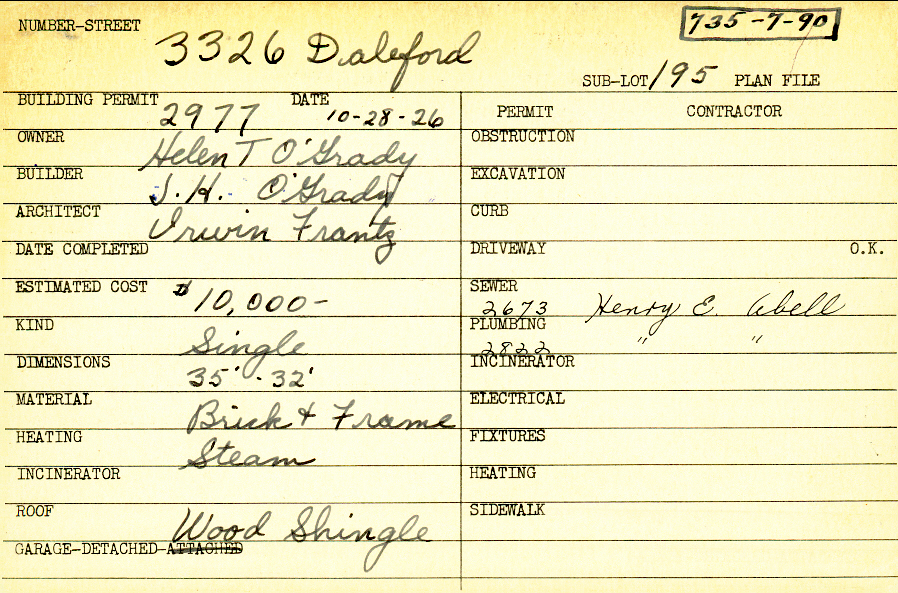 NUMBER-STREET 3326 Daleford
735-7-90
SUB-LOT 195 PLAN FILE
BUILDING PERMIT 2977 DATE 10-28-26
OWNER Helen T O'Grady
BUILDER J. H. O'Grady
ARCHITECT Irwin Frantz
DATE COMPLETED
ESTIMATED COST $10,000-
KIND Single
DIMENSIONS 35' - 32'
MATERIAL Brick & Frame
HEATING Steam
INCINERATOR
ROOF Wood Shingle
GARAGE-DETACHED-ATTACHED
PERMIT CONTRACTOR
OBSTRUCTION
EXCAVATION
CURB
DRIVEWAY O.K.
SEWER 2673 Henry E. Abell
PLUMBING 2822 " "
INCINERATOR
ELECTRICAL
FIXTURES
HEATING
SIDEWALK